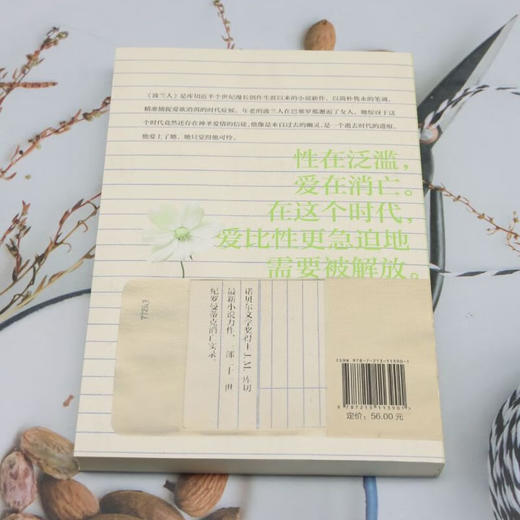 《波兰人》是库切近半个世纪漫长创作生涯以来的小说新作，以简朴隽永的笔调，
精准捕捉爱欲消弭的时代症候。年老的波兰人在巴塞罗那邂逅了女人，她惊讶于这
个时代竟然还存在神圣爱情的信徒，他像是来自过去的幽灵，是一个逝去时代的遗痕。
他爱上了她，她只觉得他可怜。
性在泛滥，
爱在消亡。
在这个时代，
爱比性更急迫地
需要被解放。
诺贝尔文学奖得主J.M.库切
最新小说力作，一部二十世
纪罗曼蒂克消亡实录。
ISBN 978-7-213-11390-1
9 787213 113901>
定价：56.00 元